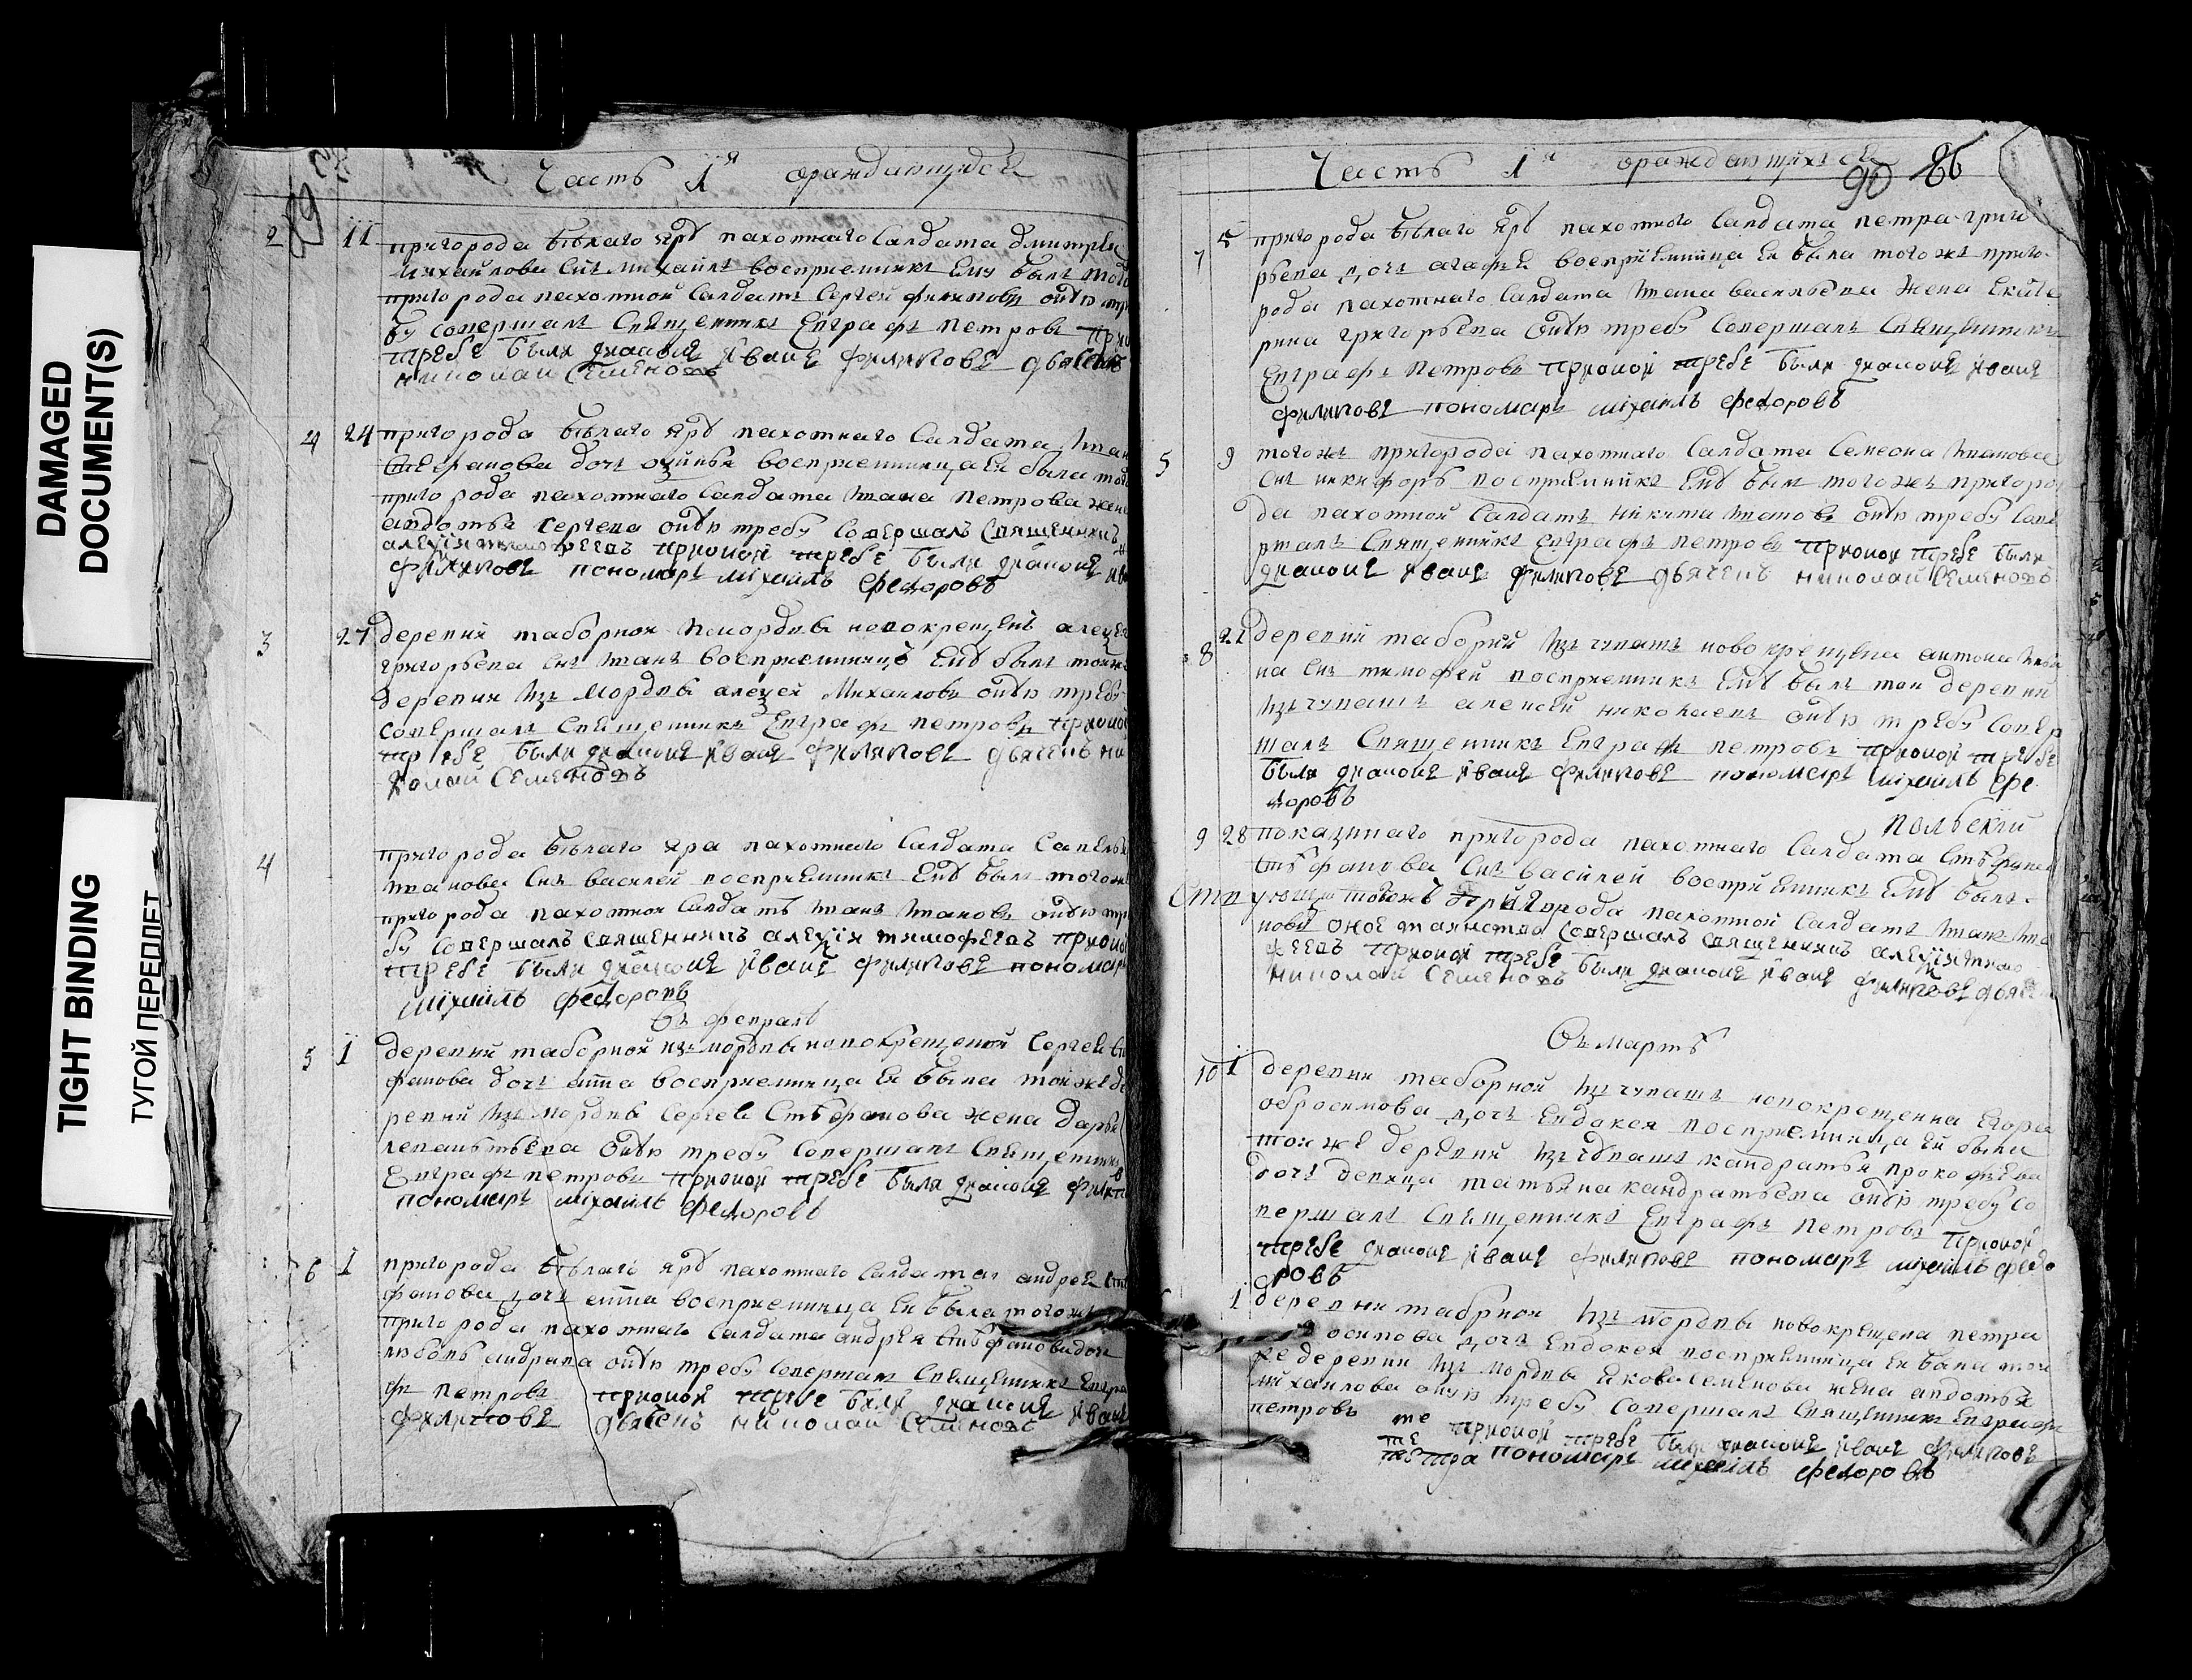 DAMAGED
DOCUMENT(S)
TIGHT BINDING
ТУГОЙ ПЕРЕПЛЕТ
89
Часть 1я ораждающихся
2 11 пригорода бѣлаго яру пахотнаго салдата дмитрея
михайлова снъ михаилъ восприемникъ ему былъ того
пригорода пахотной салдатъ сергей филиповъ оную тре
бу совершалъ священникъ евграфъ петровъ прионой
требе были диаконъ иванъ филиповъ дьячекъ
николай семеновъ
4 24 пригорода бѣлаго яру пахотнаго салдата иван
стефанова дочь восприемница ея была того
пригорода пахотнаго салдата ивана петрова жена
авдотья сергева оную требу совершалъ священникъ
алеѯій тимофеевъ прионой требе были диаконъ
филиповъ пономарь михаилъ федоровъ
3 27 деревни таборной измордвы новокрещенъ алеѯея
григорьева снъ иванъ восприемникъ ему былъ тойже
деревни изъ мордвы алеѯей михаиловъ оную требу
совершалъ священникъ евграфъ петровъ прионой
требе были диаконъ иванъ филиповъ дьячекъ ни
колай семеновъ
4 пригорода бѣлаго яра пахотнаго салдата савелья
иванова снъ василей восприемникъ ему былъ тогоже
пригорода пахотной салдатъ иванъ ивановъ оную тре
бу совершалъ священникъ алеѯій тимофеевъ прионой
требе были диаконъ иванъ филиповъ пономарь
михаилъ федоровъ
въ февралѣ
5 1 деревни таборной измордвы новокрещеной сергея сте
фанова дочь анна восприемница ея была тойже де
ревни изъ мордвы сергея стефанова жена дарья
оную требу совершалъ священникъ
евграфъ петровъ прионой требе были диаконъ филипов
пономарь михаилъ федоровъ
6 1 пригорода бѣлаго яру пахотнаго салдата андрея сте
фанова дочь анна восприемница ея была тогоже
пригорода пахотнаго салдата андрея стефанова дочь
любовь андрева оную требу совершалъ священникъ евгра
фъ петровъ прионой требе были диаконъ иванъ
филиповъ дьячекъ николай семеновъ
Часть 1я ораждающихся
90 86
7 5 пригорода бѣлаго яру пахотнаго салдата петра григо
рьева дочь агафья восприемница ея была тогожъ приго
рода пахотнаго салдата ивана васильева жена екате
рина григорьева оную требу совершалъ священникъ
евграфъ петровъ прионой требе были диаконъ иванъ
филиповъ пономарь михаилъ федоровъ
5 9 тогожъ пригорода пахотнаго салдата семеона иванова
снъ никифоръ восприемникъ ему былъ тогожъ пригоро
да пахотной салдатъ никита ивановъ оную требу сове
ршалъ священникъ евграфъ петровъ прионой требе были
диаконъ иванъ филиповъ дьячекъ николай семеновъ
8 21 деревни таборной изъ чувашъ новокрещена антона ива
на снъ тимофей восприемникъ ему былъ той деревни
изъ чувашъ алексей николаевъ оную требу совер
шалъ священникъ евграфъ петровъ прионой требе
были диаконъ иванъ филиповъ пономарь михаилъ фе
доровъ
9 28 показаннаго пригорода пахотнаго салдата стефана
стефанова снъ василей восприемникъ ему былъ
тогожъ пригорода пахотной салдатъ иванъ ива
новъ оное таинство совершалъ священникъ алеѯій тимо
феевъ прионой требе были диаконъ иванъ филиповъ дьячекъ
николай семеновъ
въ мартѣ
10 1 деревни таборной изъ чувашъ новокрещенна егора
обросимова дочь евдокея восприемница ей была
той же деревни изъ чувашъ кандратья прокофьева
дочь девица татьяна кандратьева оную требу со
вершалъ священникъ евграфъ петровъ прионой
требе диаконъ иванъ филиповъ пономарь михаилъ федо
ровъ
1 деревни таборной изъ мордвы новокрещена петра
осипова дочь евдокея восприемница ея была той
же деревни изъ мордвы якова семенова жена авдотья
михаилова оную требу совершалъ священникъ евграфъ
петровъ прионой требе были диаконъ иванъ филиповъ
пономарь михаилъ федоровъ